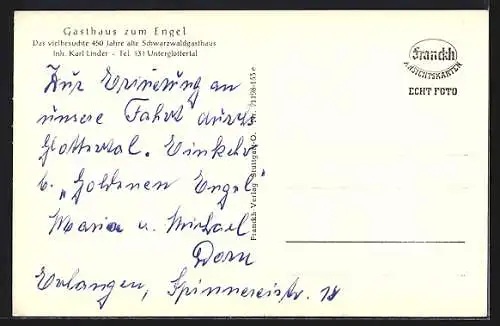 Gasthaus zum Engel
Das vielbesuchte 450 Jahre alte Schwarzwaldgasthaus
Inh. Karl Linder - Tel. 131 Unterglottertal
Franckh
ANSICHTSKARTEN
ECHT FOTO
Zur Erinerung an
unsere Fahrt durchs
Glottertal. Einkehr
b. „Goldenen Engel"
Maria u. Michael
Dorn
Erlangen, Spinnereistr. 18
Franckh-Verlag Stuttgart-O. Nr.